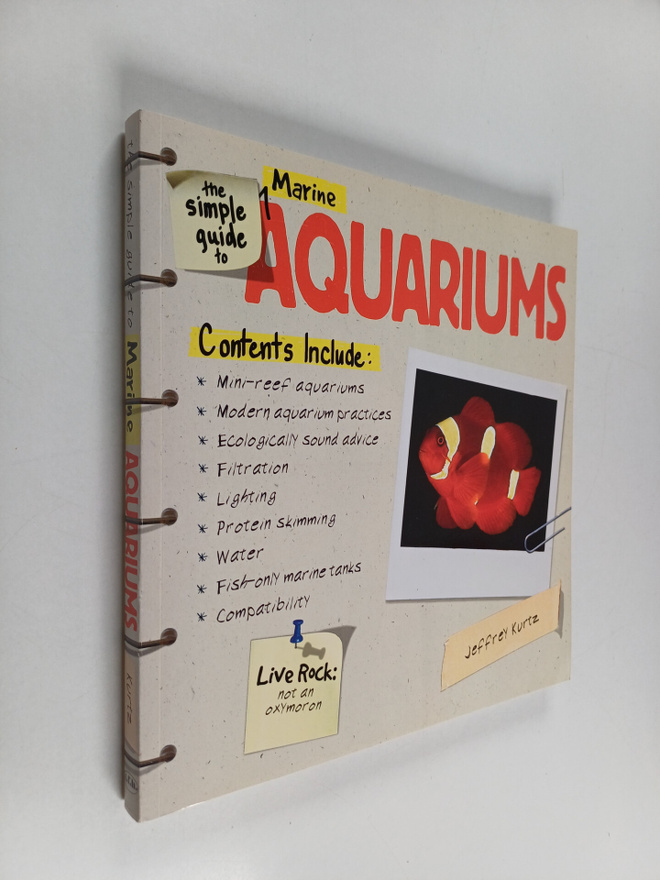 the simple guide to Marine AQUARIUMS Kurtz
the
simple
guide
to
Marine
AQUARIUMS
Contents Include:
* Mini-reef aquariums
* Modern aquarium practices
* Ecologically sound advice
* Filtration
* Lighting
* Protein skimming
* Water
* Fish-only marine tanks
* Compatibility
Live Rock:
not an
oxymoron
Jeffrey Kurtz